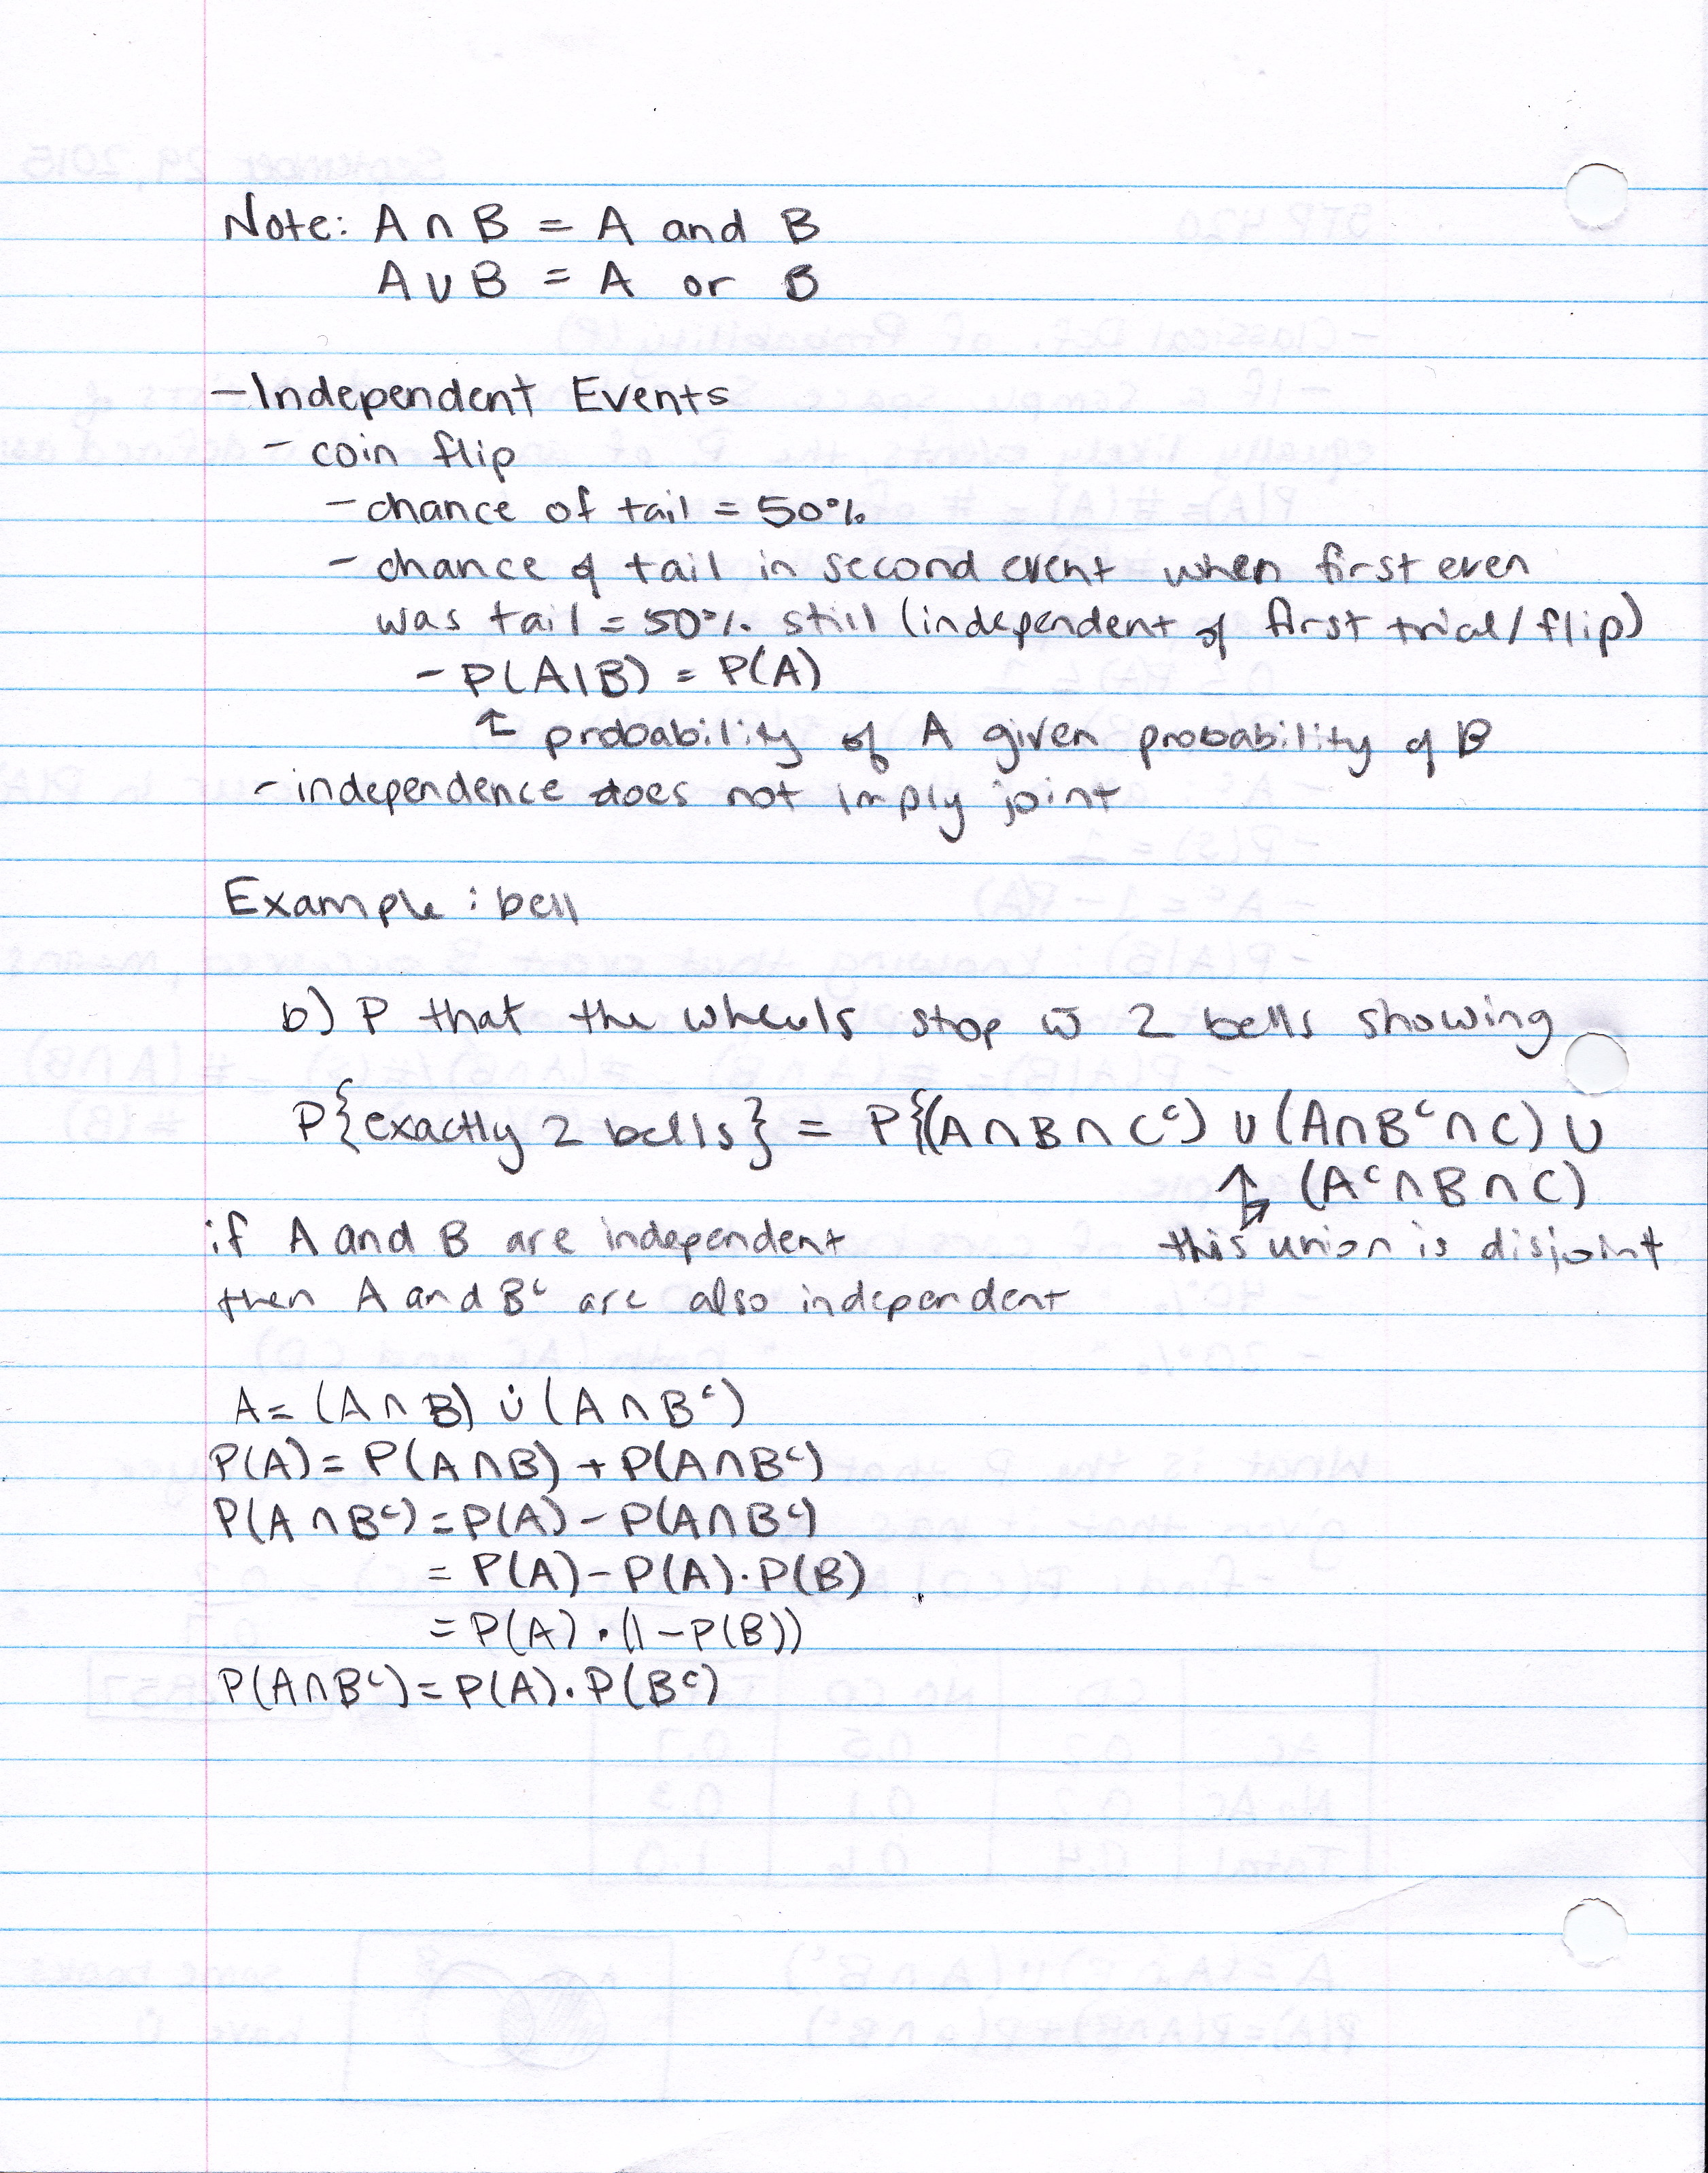 Note: A ∩ B = A and B
A ∪ B = A or B
- Independent Events
- coin flip
- chance of tail = 50%
- chance of tail in second event when first even
was tail = 50% still (independent of first trial/flip)
- P(A|B) = P(A)
↑ probability of A given probability of B
- independence does not imply joint
Example: bell
b) P that the wheels stop w̄ 2 bells showing
P{exactly 2 bells} = P{(A∩B∩Cᶜ) ∪ (A∩Bᶜ∩C) ∪
(Aᶜ∩B∩C)
if A and B are independent
this union is disjoint
then A and Bᶜ are also independent
A = (A∩B) ∪̇ (A∩Bᶜ)
P(A) = P(A∩B) + P(A∩Bᶜ)
P(A∩Bᶜ) = P(A) - P(A∩Bᶜ)
= P(A) - P(A)·P(B)
= P(A)·(1-P(B))
P(A∩Bᶜ) = P(A)·P(Bᶜ)